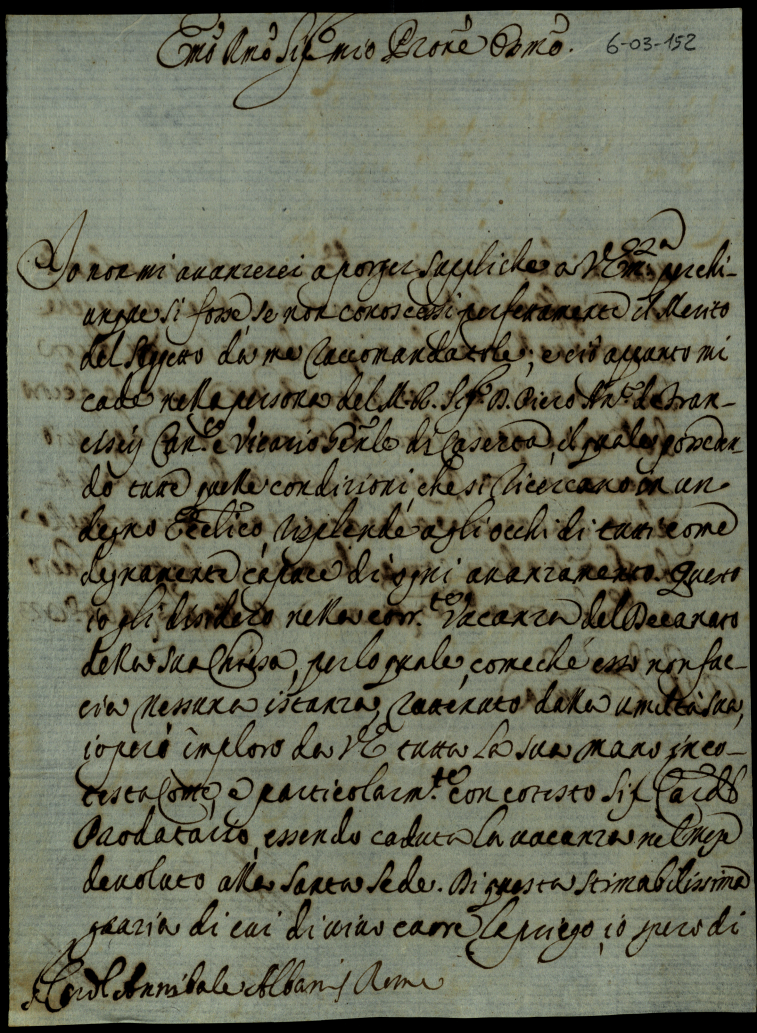 Emõ Rmõ Sig.re mio Pron̄e Osmõ.
6-03-152
Io non mi avanzerei a porger suppliche a V. Em.za per chi-
unque si fosse se non conoscessi perfettamente il Merito
del Soggetto da me raccomandatole; e ciò appunto mi
cade nella persona del M. R. Sig.r D. Piero An.o de Fran-
Can.co e Vicario Gēnle di Caserta, il quale
do tutte quelle condizioni che si ricercano in un
degno Ecc̄lico, risplende agli occhi di tutti come
degnamente capace di ogni avanzamento. Questo
io gli desidero nella corr.te Vacanza del Decanato
della sua Chiesa, per lo quale, comeché esso non fac-
cia nessuna istanza, rattenuto dalla umiltà sua,
io però imploro da V. E. tutta la sua mano in co-
testa Corte, e particolarm.te con cotesto Sig.r Card.l
Prodatario, essendo caduta la vacanza nel mese
devoluto alla Santa Sede. Di questa stimabilissima
grazia di cui di vivo cuore la priego, io spero di
Card.l Annibale Albani Roma